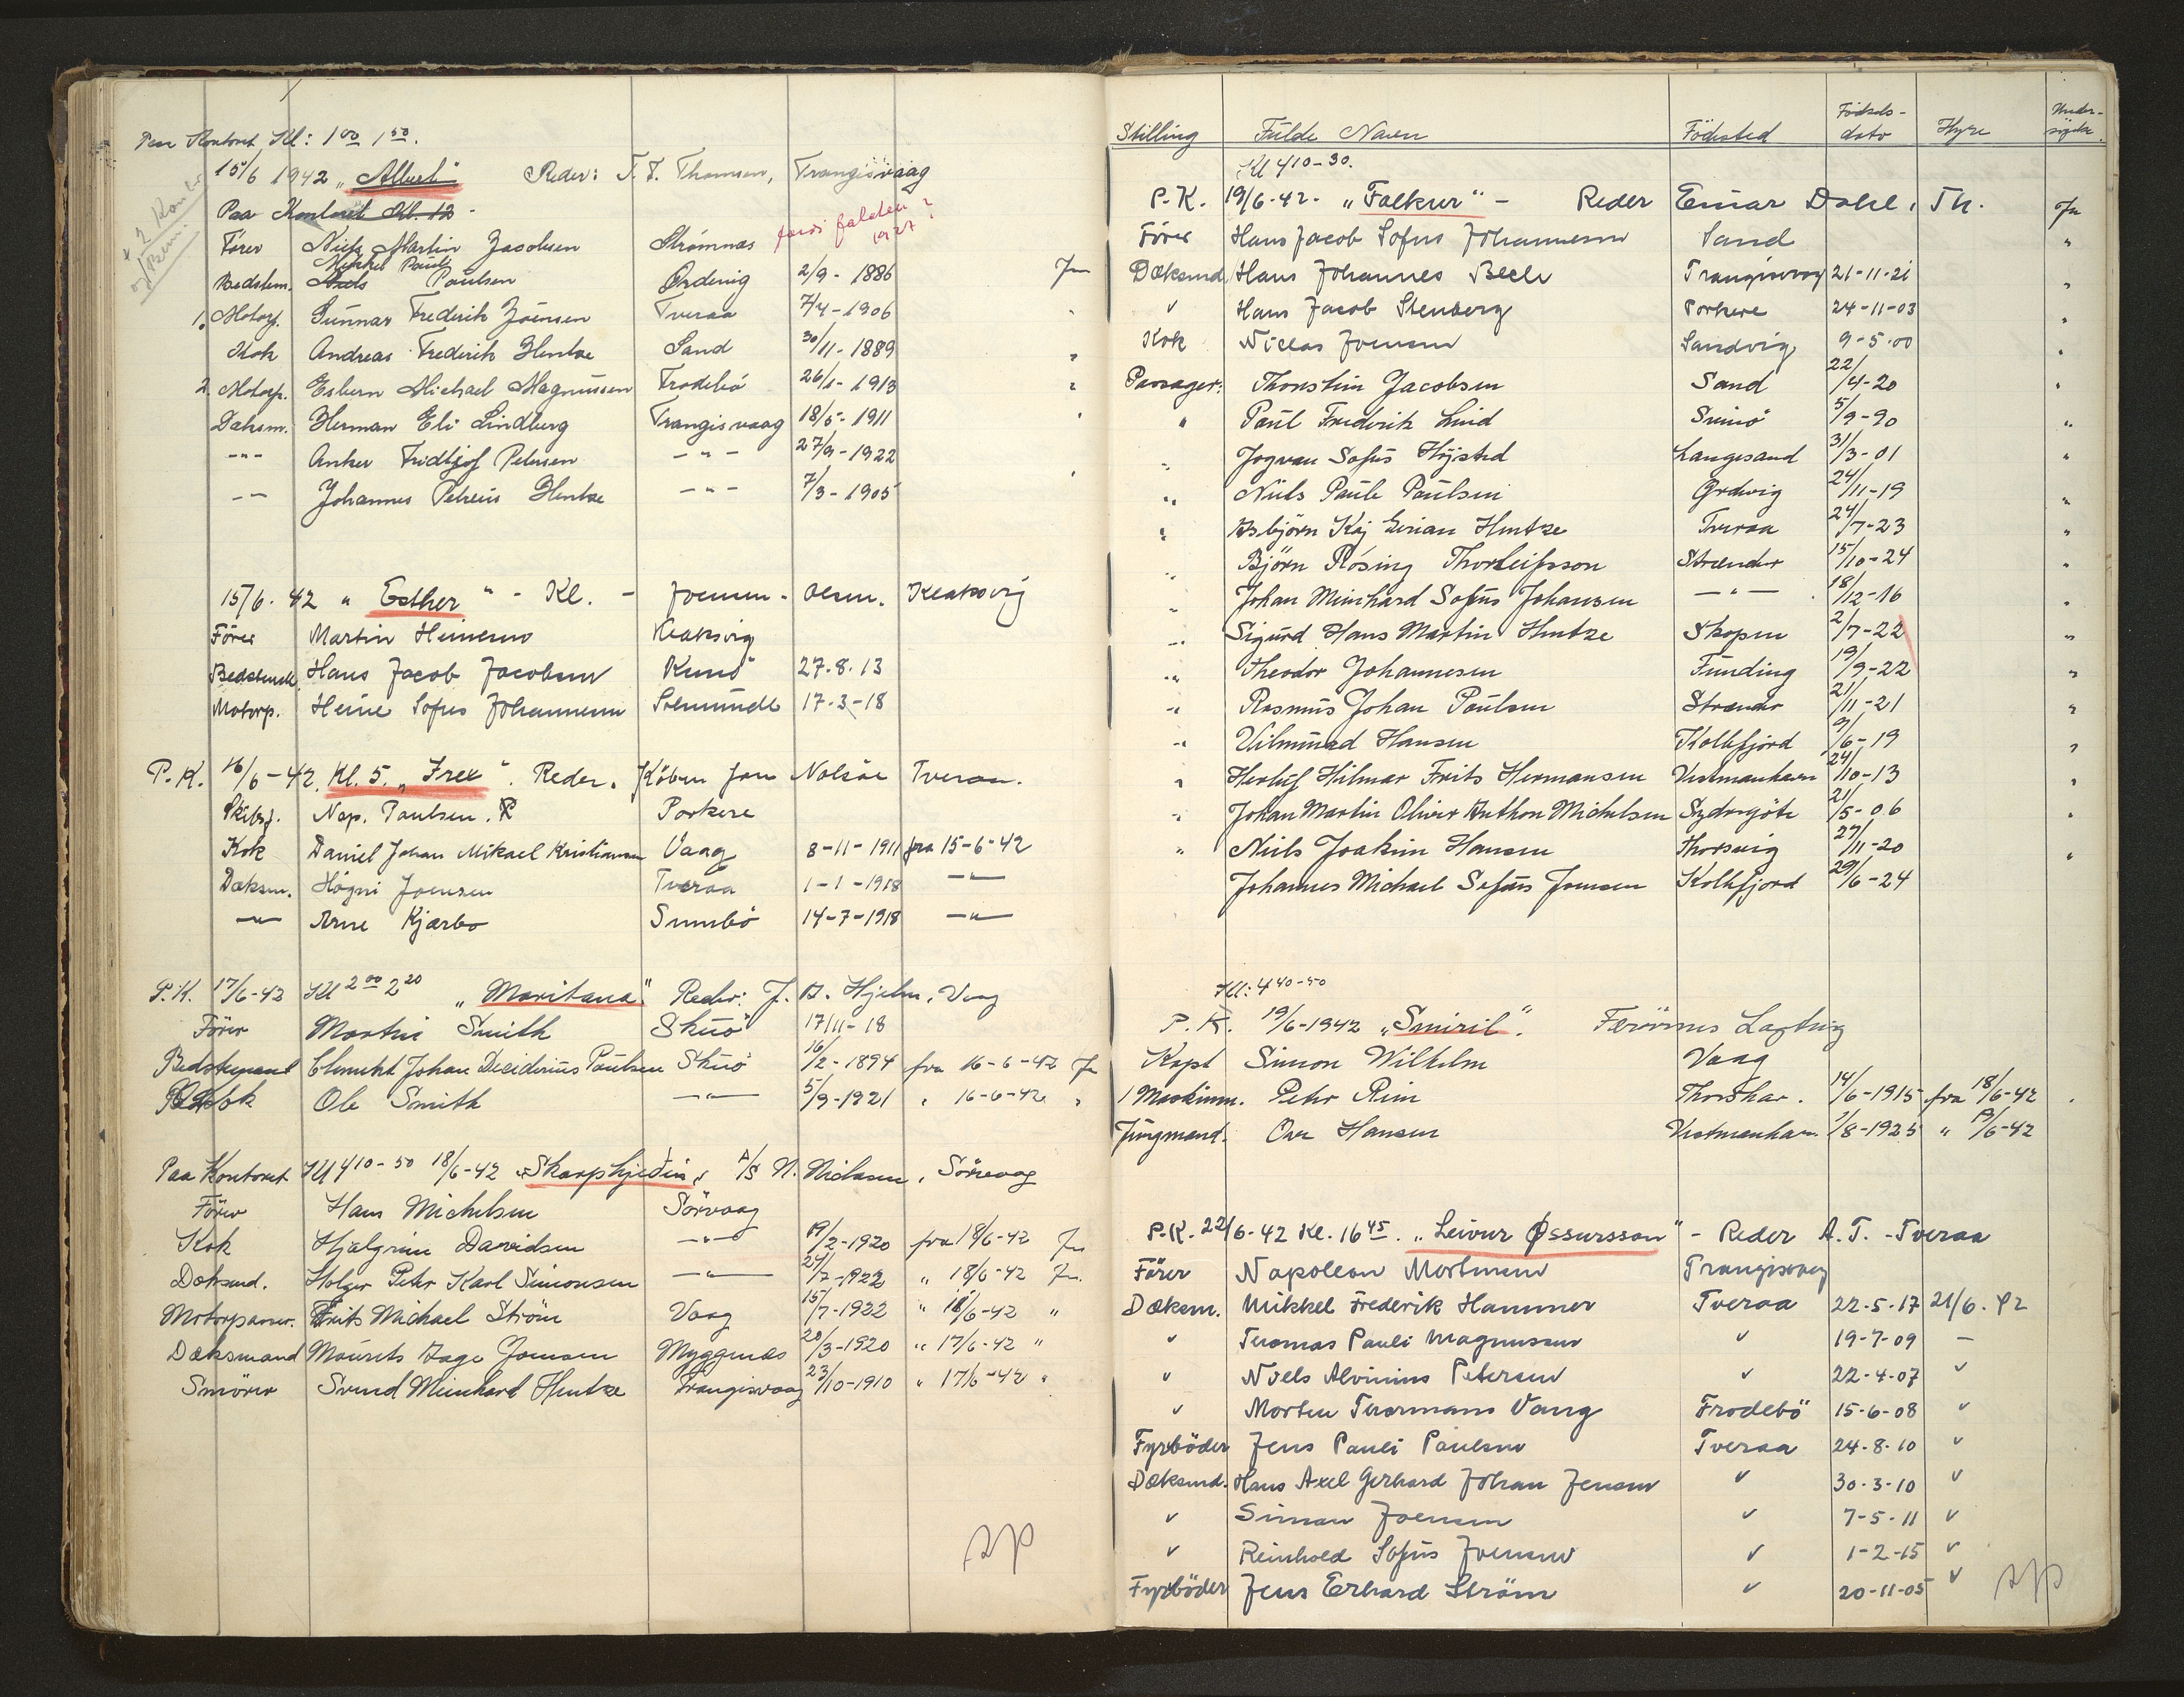 Paa Kontoret Kl: 1 00 1 50.
15/6 1942 „Albert" Reder: T. F. Thomsen, Trangisvaag
Paa Kontoret Kl. 12 -
+ 2 Kon
Förer Niels Martin Jacobsen Strömnæs
1927
Mikkel Pauli
Bedstem. Niels Paulsen Ördevig 2/9 - 1886 Ja
1. Motorp. Gunnar Frederik Joensen Tveraa 7/4 - 1906 "
Kok Andreas Frederik Hentze Sand 30/11 - 1889 "
2. Motorp. Esbern Michael Magnussen Frodebö 26/1 - 1913 "
Daksm. Herman Eli Lindberg Trangisvaag 18/5 - 1911 "
-"- Anker Fridtjof Petersen - " - 27/9 - 1922
-"- Johannes Petreus Hentze - " - 7/3 - 1905 "
15/6. 42 „ Esther " - Kl. - Joensen - Olsen. Klaksvig
Förer Martin Heinesen Klaksvig
Bedstemd. Hans Jacob Jacobsen Kunö 27.8.13
Motorp. Heine Sofus Johannesen Solmunde 17-3-18
P.K. 16/6-42. Kl. 5. „Frex". Reder. Köbm Jon Nolsöe Tveraa.
Skibsf. Nap. Paulsen. R Porkere
Kok Daniel Johan Mikael Kristiansen Vaag 8-11-1911 fra 15-6-42
Dæksm. Högni Joensen Tveraa 1-1-1918 —"—
—"— Arne Kjærbo Sumbö 14-7-1918 —"—
P.K. 17/6-42 Kl 2 00 2 20 „Maritana" Reder: J. D. Hjelm, Vaag
Förer Martin Smith Skuö 17/11-18
Bedstemand Clemeht Johan Desiderius Poulsen Skuö 16/2-1894 fra 16-6-42 Ja
Kok Ole Smith —"— 5/9-1921 " 16-6-42 "
Paa Kontoret Kl 4 10-50 18/6-42 „Skarphjedin" A/S N. Niclasen, Sörvaag
Förer Hans Michelsen Sörvaag
Kok Hjalgrim Davidsen —"— 19/2-1920 fra 18/6-42 Ja
Dæksmd. Holger Peter Karl Simonsen —"— 24/7-1922 " 18/6-42 Ja.
Motorpasser. Frits Michael Ström Vaag 15/7-1922 " 18/6-42 "
Dæksmand Mourits Aage Joensen Myggenæs 20/3-1920 " 17/6-42 "
Smörer Svend Meinhart Hentze Trangisvaag 23/10-1910 " 17/6-42 "
Stilling Fulde Navn Födested Födsels-dato Hyre Under-sögelse.
Kl 4 10-30.
P.K. 19/6-42. „Falkur" - Reder Einar Dahl, Th. Ja
Förer Hans Jacob Sofus Johannesen Sand "
Dæksmd. Hans Johannes Bech Trangisvaag 21-11-21 "
" Hans Jacob Stenberg Porkere 24-11-03 "
Kok Niclas Joensen Sandvig 9-5-00 "
Passager: Thorstin Jacobsen Sand 22/4-20 "
" Paul Frederik Lind Svinö 5/9-90 "
" Jogvan Sofus Höjsted Langesand 31/3-01 "
" Niels Paule Paulsen Ördevig 24/11-19 "
" Asbjörn Kaj Eirian Hentze Tveraa 24/7-23 "
" Björn Rösing Thorleifsson Strender 15/10-24 "
" Johan Meinhard Sofus Johansen —"— 18/12-16 "
" Sigurd Hans Martin Hentze Skopen 2/7-22 "
" Theodor Johannesen Funding 19/9-22 "
" Rasmus Johan Poulsen Strender 21/11-21 "
" Vilmund Hansen Kollefjord 9/6-19 "
" Herluf Hilmar Frits Hermansen Vestmanhavn 24/10-13 "
" Johan Martin Oliver Anthon Michelsen Sydrugöte 21/5-06 "
" Niels Joakim Hansen Thorsvig 27/11-20 "
Johannes Michael Sofus Joensen Kollefjord 29/6-24
Kl: 4 40-50
P.K. 19/6-1942 „Smiril". Færöernes Lagting
Kapt Simon Wilhelm Vaag
1 Maskinm. Peter Rein Thorshav. 14/6-1915 fra 18/6-42 "
Jungmand. Ove Hansen Vestmanhavn. 1/8-1925 " 19/6-42
P.K. 22/6-42 Kl. 16 45. „Leivur Øssursson" - Reder A.T. - Tveraa
Förer Napoleon Mortensen Trangisvaag
Dæksm. Mikkel Frederik Hammer Tveraa 22-5-17 21/6.42
" Thomas Pauli Magnussen " 19-7-09 —
" Niels Alvinius Petersen " 22-4-07 "
" Morten Thormann Vang Frodebö 15-6-08 "
Fyrböder Jens Pauli Paulsen Tveraa 24-8-10 "
Dæksmd. Hans Axel Gerhard Johan Jensen " 30-3-10 "
" Simon Joensen " 7-5-11 "
" Reinhold Sofus Joensen " 1-2-15 "
Fyrböder Jens Erhard Ström " 20-11-05 "